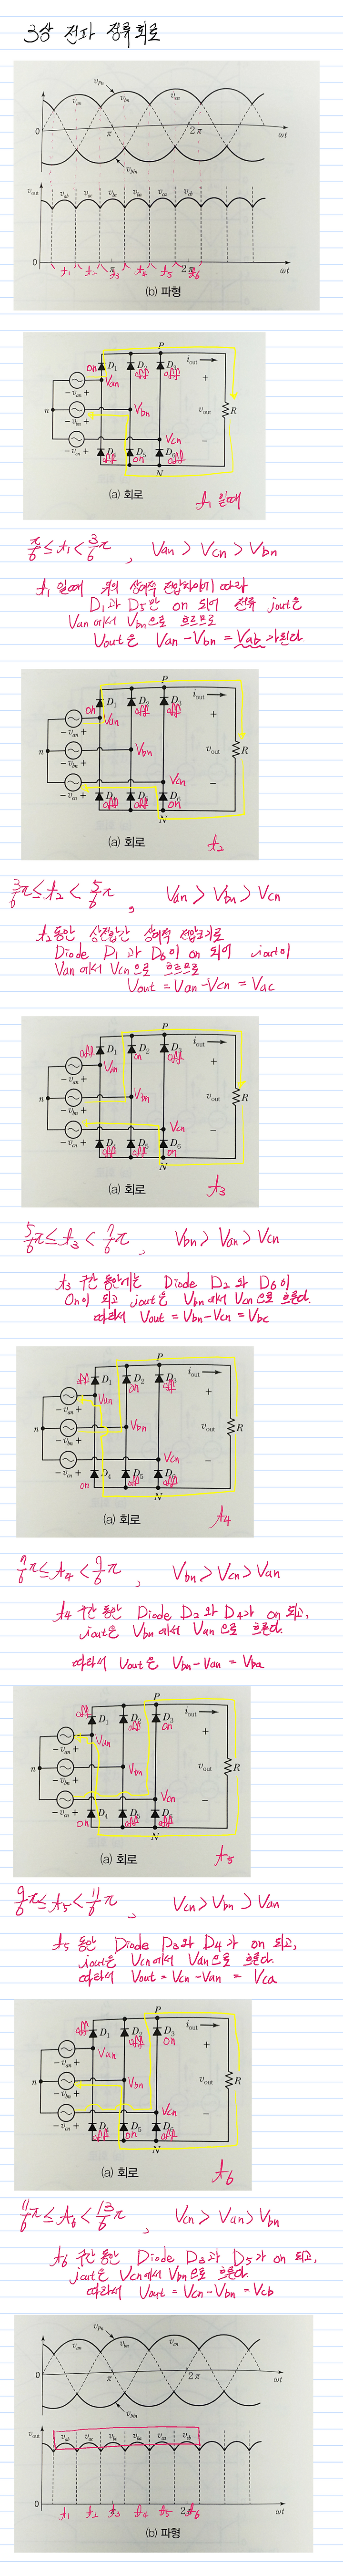 3상 전파 정류회로
v_Pn
v_an v_bn v_cn
0 π 2π ωt
v_Nn
v_out v_ab v_ac v_bc v_ba v_ca v_cb
0 π 2π ωt
t1 t2 t3 t4 t5 t6
(b) 파형
P
on D1 off D2 off D3 i_out
Van
- v_an + +
n Vbn v_out R
- v_bn +
Vcn -
- v_cn +
off D4 on D5 off D6
N
(a) 회로 t1 일때
π/6 ≤ t1 < 3/6 π , Van > Vcn > Vbn
t1 일때 위의 상대적 전압차이에 따라
D1과 D5만 on 되어 전류 iout은
Van 에서 Vbn으로 흐르므로
Vout은 Van - Vbn = Vab 가된다
P
on D1 off D2 off D3 i_out
Van
- v_an + +
n Vbn v_out R
- v_bn +
Vcn -
- v_cn +
off D4 off D5 on D6
N
(a) 회로 t2
3/6 π ≤ t2 < 5/6 π , Van > Vbn > Vcn
t2동안 상전압간 상대적 전압크기로
Diode D1 과 D6이 on 되어 iout이
Van 에서 Vcn 으로 흐르므로
Vout = Van - Vcn = Vac
P
off D1 on D2 off D3 i_out
Van
- v_an + +
n Vbn v_out R
- v_bn +
Vcn -
- v_cn +
off D4 off D5 on D6
N
(a) 회로 t3
5/6 π ≤ t3 < 7/6 π , Vbn > Van > Vcn
t3 구간 동안에는 Diode D2 와 D6 이
On이 되고 iout은 Vbn 에서 Vcn 으로 흐른다.
따라서 Vout = Vbn - Vcn = Vbc
P
off D1 on D2 off D3 i_out
Van
- v_an + +
n Vbn v_out R
- v_bn +
Vcn -
- v_cn +
on D4 off D5 off D6
N
(a) 회로 t4
7/6 π ≤ t4 < 9/6 π , Vbn > Vcn > Van
t4 구간 동안 Diode D2 와 D4가 on 되고,
iout은 Vbn 에서 Van 으로 흐른다.
따라서 Vout은 Vbn - Van = Vba
P
off D1 off D2 on D3 i_out
Van
- v_an + +
n Vbn v_out R
- v_bn +
Vcn -
- v_cn +
on D4 off D5 off D6
N
(a) 회로 t5
9/6 π ≤ t5 < 11/6 π , Vcn > Vbn > Van
t5 동안 Diode D3와 D4가 on 되고,
iout은 Vcn에서 Van으로 흐른다.
따라서 Vout = Vcn - Van = Vca
P
off D1 off D2 on D3 i_out
Van
- v_an + +
n Vbn v_out R
- v_bn +
Vcn -
- v_cn +
off D4 on D5 off D6
N
(a) 회로 t6
11/6 π ≤ t6 < 13/6 π , Vcn > Van > Vbn
t6 구간 동안 Diode D3과 D5가 on 되고,
iout은 Vcn에서 Vbn으로 흐른다.
따라서 Vout = Vcn - Vbn = Vcb
v_Pn
v_an v_bn v_cn
0 π 2π ωt
v_Nn
v_out v_ab v_ac v_bc v_ba v_ca v_cb
0 π 2π ωt
t1 t2 t3 t4 t5 t6
(b) 파형